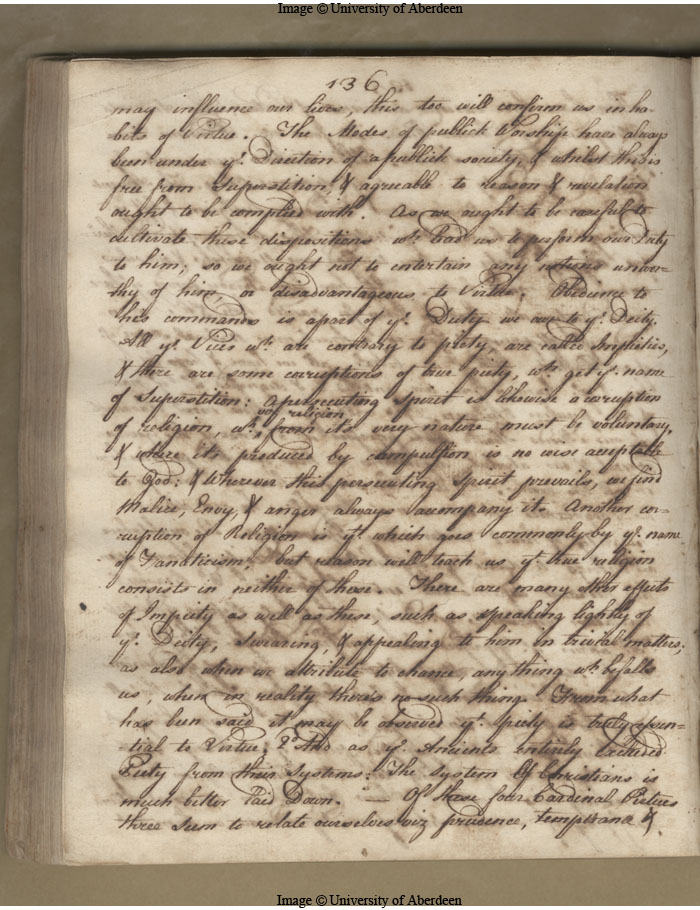 Image © University of Aberdeen
136
may influence our lives, this too will confirm us in ha-
bits of Virtue. The Modes of publick Worship have always
been under ye. Direction of a publick society, & whilst this is
free from Superstition, & agreable to reason & revelation
ought to be complied with. As we ought to be careful to
cultivate these dispositions wh. lead us to perform our Duty
to him; so we ought not to entertain any notions unwor-
thy of him, or disadvantageous to Virtue. Obedience to
his commands is a part of ye. Duty we owe to ye. Deity.
All ye. Vices wh. are contrary to piety, are called Impieties,
& there are some corruptions of true piety, wh. get ye. name
of Superstition: a persecuting spirit is likewise a corruption
of religion, wh. religion from its very nature must be voluntary,
& where its produced by compulsion is no wise acceptable
to God: & Wherever this persecuting Spirit prevails, we find
Malice, Envy, & anger always acompany it. Another cor-
ruption of Religion is yt. which goes commonly by ye. name
of Fanaticism. but reason will teach us yt. true religion
consists in neither of those. There are many other effects
of Impiety as well as these, such as speaking lightly of
ye. Deity, swearing, & appealing to him in trivial matters;
as also when we attribute to chance, any thing wh. befalls
us, when in reality there is no such thing. From what
has been said it may be observed yt. piety is truly essen-
tial to Virtue; And as ye. Ancients entirely excluded
Piety from their Systems: The System Of Christians is
much better laid Down. — Of these four Cardinal Virtues
three seem to relate ourselves viz prudence, temperance &
Image © University of Aberdeen